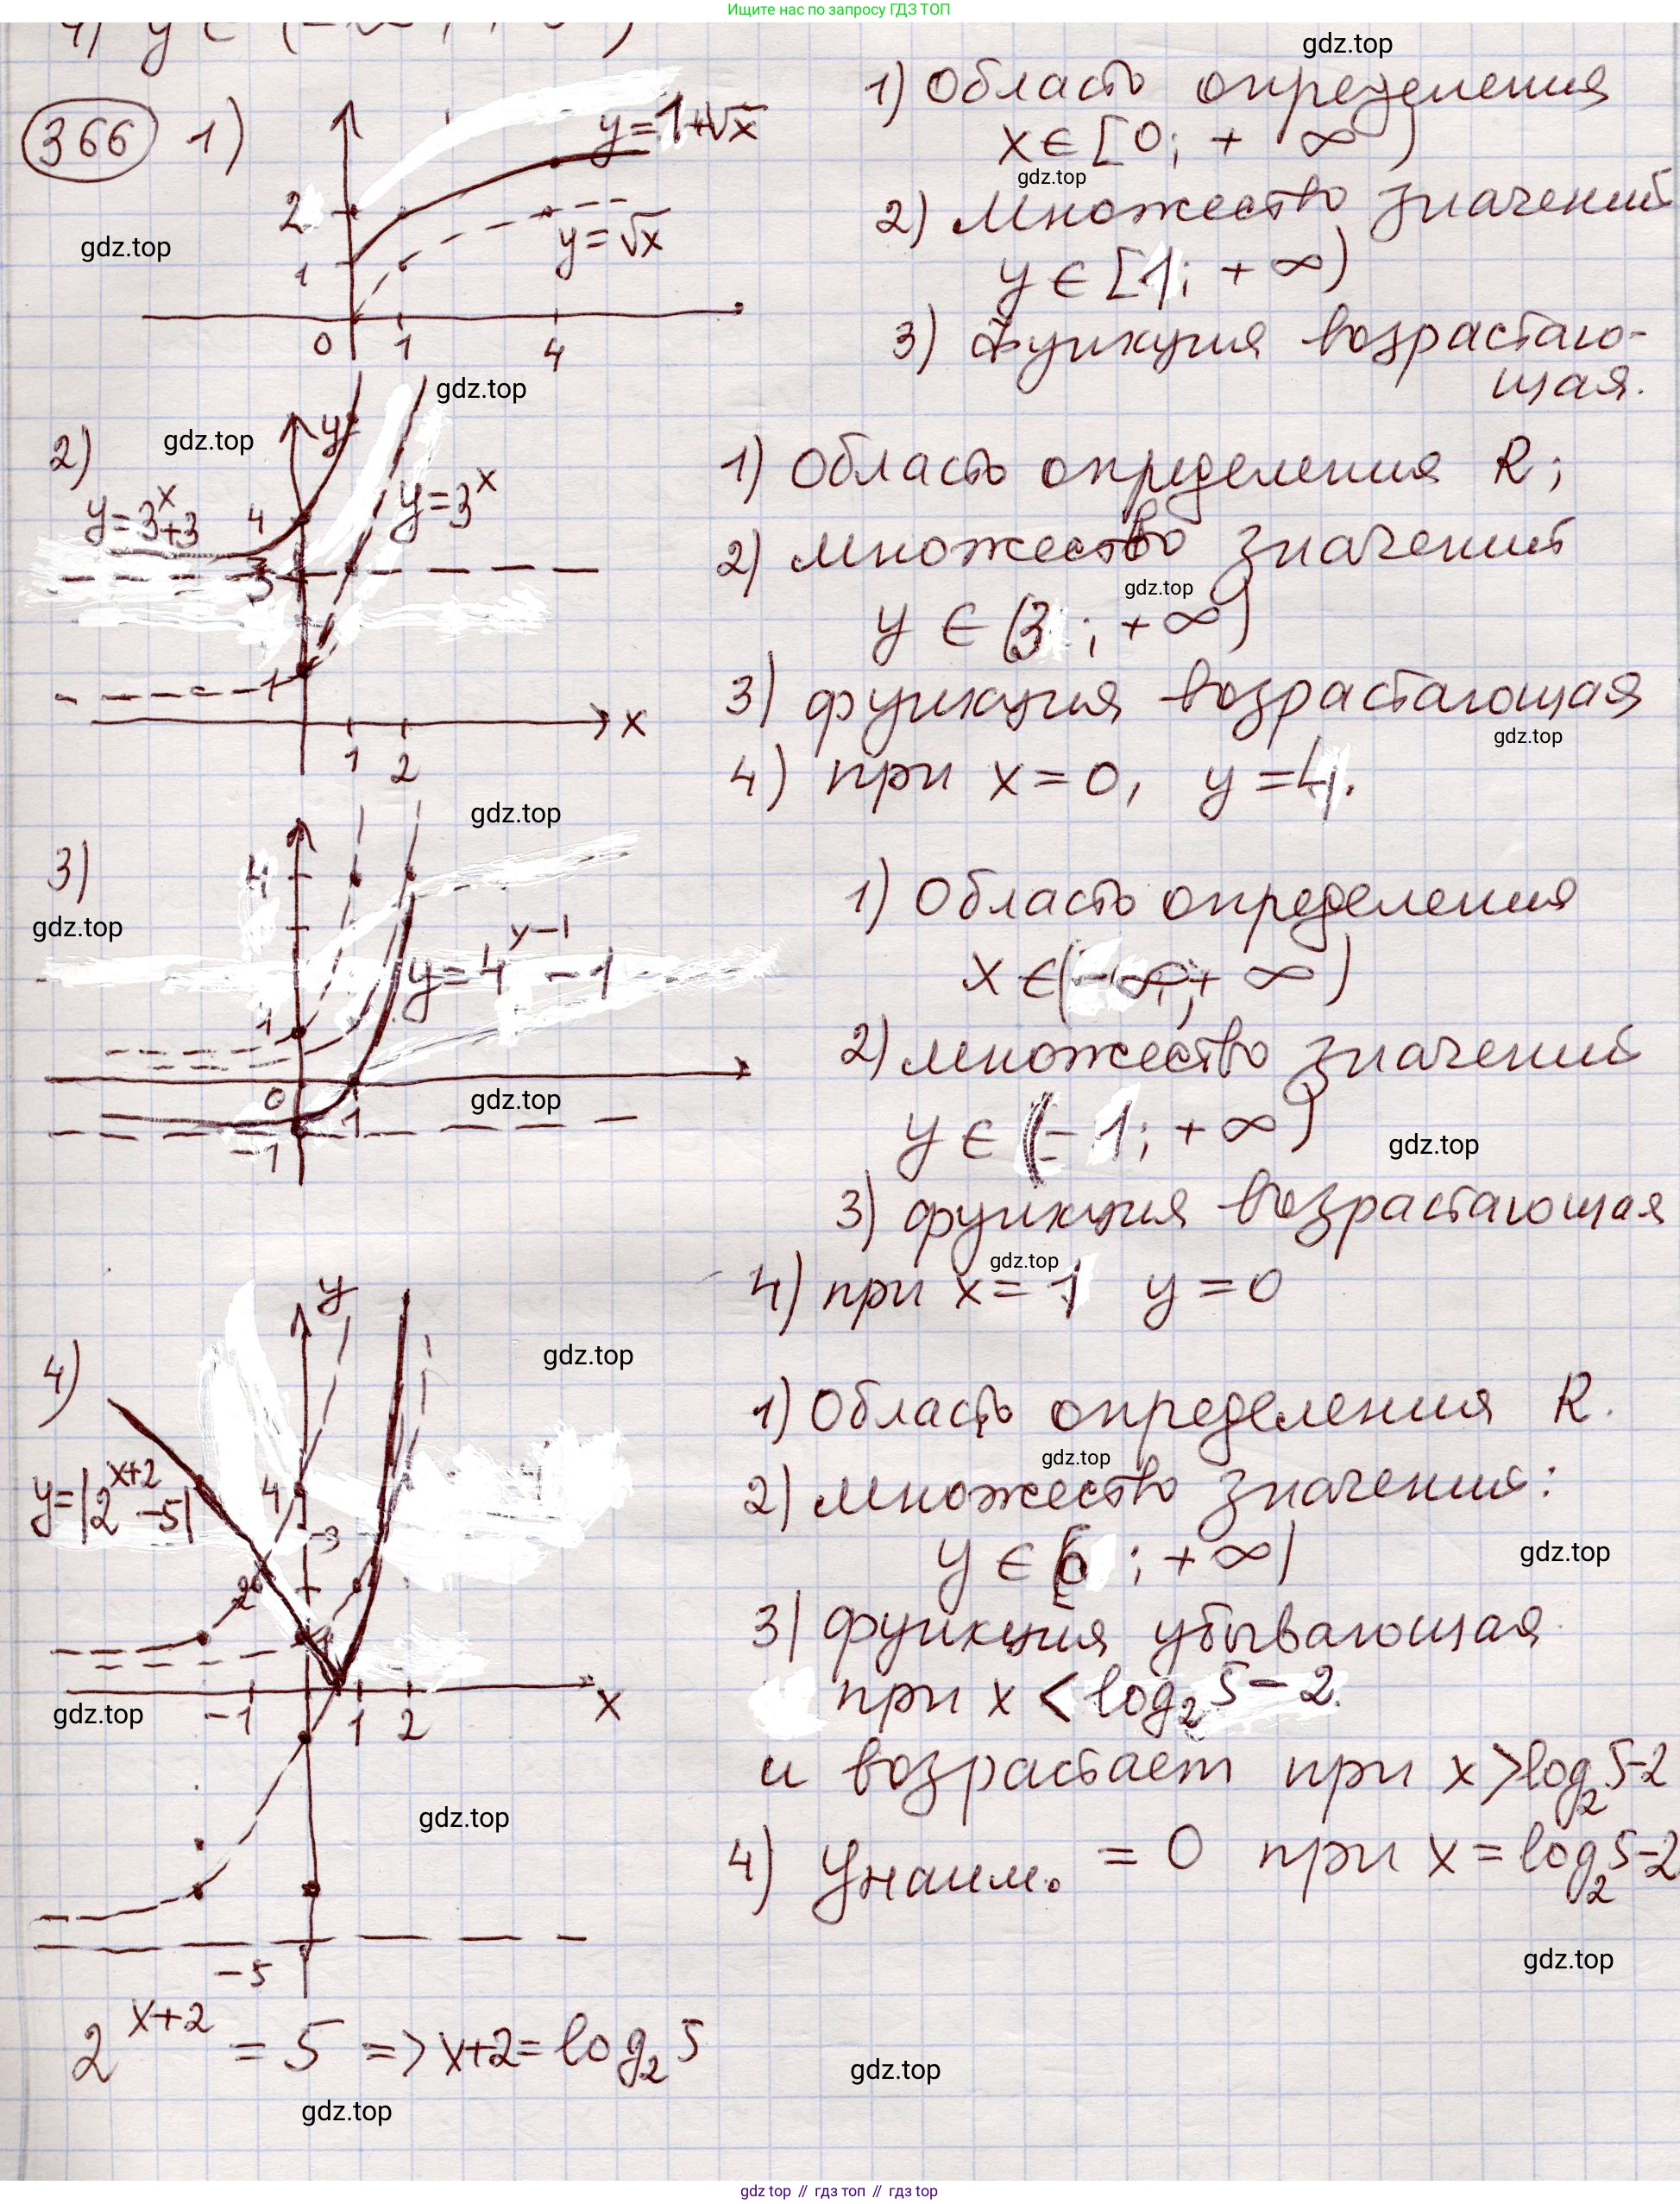 Ищите нас по запросу ГДЗ ТОП
gdz.top
366 1)
y=1+√x
2
y=√x
1
0 1 4
gdz.top
1) Область определения
x∈[0; +∞)
gdz.top
2) множество значений
y∈[1; +∞)
3) функция возрастаю-
щая.
gdz.top
2)
gdz.top
y
y=3^x+3
4
y=3^x
3
1
x
1 2
1) Область определения R;
2) множество значений
gdz.top
y∈(3; +∞)
3) функция возрастающая
gdz.top
4) при x=0, y=4.
gdz.top
3)
4
gdz.top
y=4^{x-1}-1
1
0
gdz.top
1
-1
1) Область определения
x∈(-∞; +∞)
2) множество значений
y∈(-1; +∞)
gdz.top
3) функция возрастающая
gdz.top
4) при x=1 y=0
4)
y
gdz.top
y=|2^{x+2}-5|
4
3
2
gdz.top
-1 1 2
x
gdz.top
-5
1) Область определения R.
gdz.top
2) множество значений:
y∈[0; +∞)
gdz.top
3) функция убывающая
при x<log₂5-2.
и возрастает при x>log₂5-2
4) yнаим. = 0 при x=log₂5-2
gdz.top
2^{x+2} = 5 => x+2=log₂5
gdz.top
gdz.top
gdz.top // гдз топ // гдз top